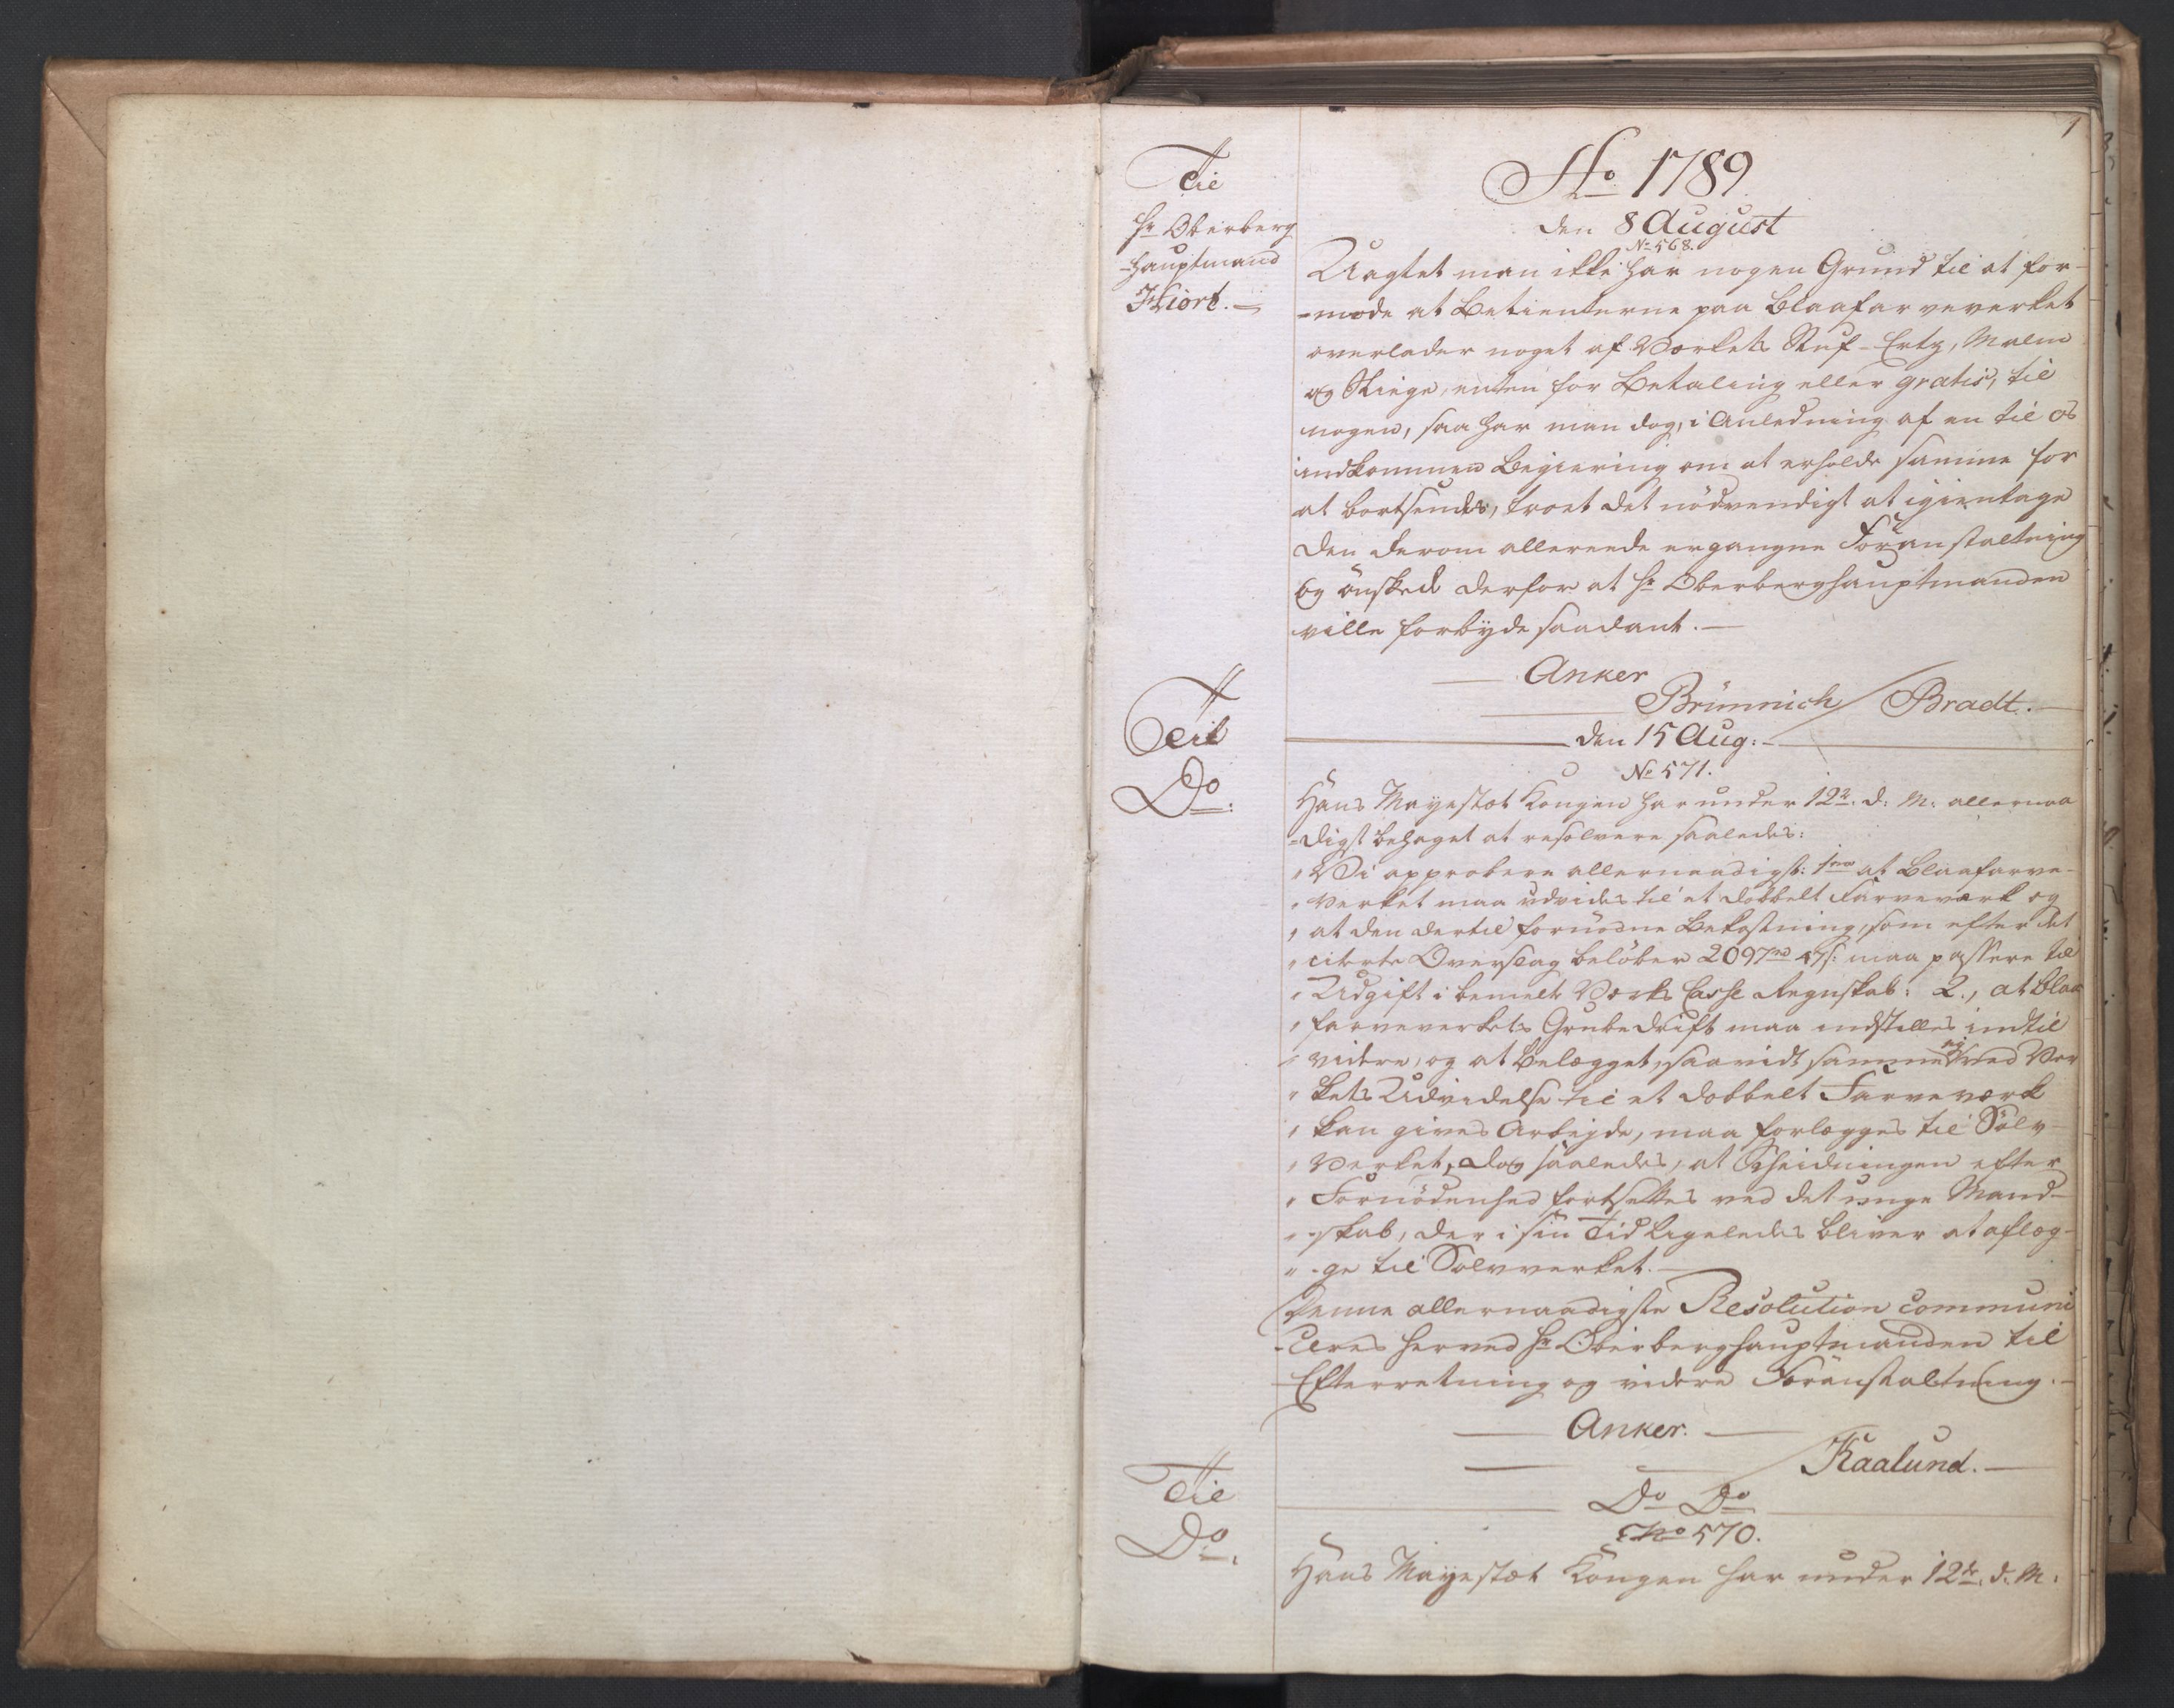 1
Ao 1789
den 8 August
No 568.
Til
Hr Oberberg
-hauptmand
Hiort. –
Uagtet man ikke har nogen Grund til at for-
-mode at Betienterne paa Blaafarveverket
overlader noget af Værkets Stuf-Ertz, Malm
og Sliege, enten for Betaling eller gratis, til
nogen, saa har man dog, i Anledning af en til os
indkommen Begiering om at erholde samme for
at bortsendes, troet det nödvendigt at igientage
den derom allereede ergangne Foranstaltning
og önsked derfor at Hr Oberberghauptmanden
ville forbyde saadant. –
Anker
Brünnich / Bradt. –
den 15 Aug: –
No 571.
Til
Do:
Hans Mayestæt Kongen har under 12te d: M: allernaa
-digst behaget at resolvere saaledes:
" Vi approbere allernaadigst: 1mo at Blaafarve-
" Verket maa udvides til et dobbelt Farveværk og
" at den dertil fornödne Bekostning, som efter det
" citerte Overslag belöber 2097rd 47s: maa passere til
" Udgift i bemelte Verks Casse Regnskab: 2., at Blaa
" farveverkets Grubedrift maa indstilles indtil
" videre, og at Belægget, saavidt samme ej ved Ver
" kets Udvidelse til et dobbelt Farveværk
" kan gives Arbejde, maa forlægges til Sölv-
" Verket, dog saaledes, at Scheidningen efter
" Fornödenhed fortsættes ved det unge Mand-
" -skab, der i sin Tid ligeledes bliver at aflæg-
" -ge til Sölvverket. –
Denne allernaadigste Resolution communi
-ceres herved Hr Oberberghauptmanden til
Efterretning og videre Foranstaltning. –
Anker. –
/ Kaalund. –
Do Do
No 570.
Til
Do.
Hans Mayestæt Kongen har under 12te d: M: